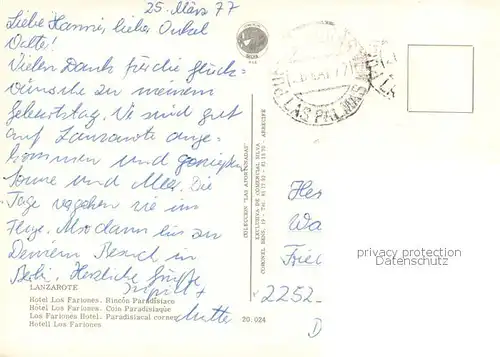 25. März 77
Liebe Hanni, lieber Onkel
Walter!
Vielen Dank für die Glück-
wünsche zu meinem
Geburtstag. Wir sind gut
auf Lanzarote ange-
kommen und genießen
Sonne und Meer. Die
Tage vergehen wie im
Fluge. Also dann bis zu
Deinem Besuch in
Berlin. Herzliche Grüße
+
Mutter
LAS PALMAS
LANZAROTE
Hotel Los Fariones. Rincón Paradisíaco
Hotel Los Fariones. Coin Paradisiaque
Los Fariones Hotel. Paradisiacal corner
Hotell Los Fariones
20.024
COLECCION "LAS AFORTUNADAS"
EXCLUSIVA DE COMERCIAL SILVA
ARRECIFE
Her
Wa
Frie
2252-
D
privacy protection
Datenschutz